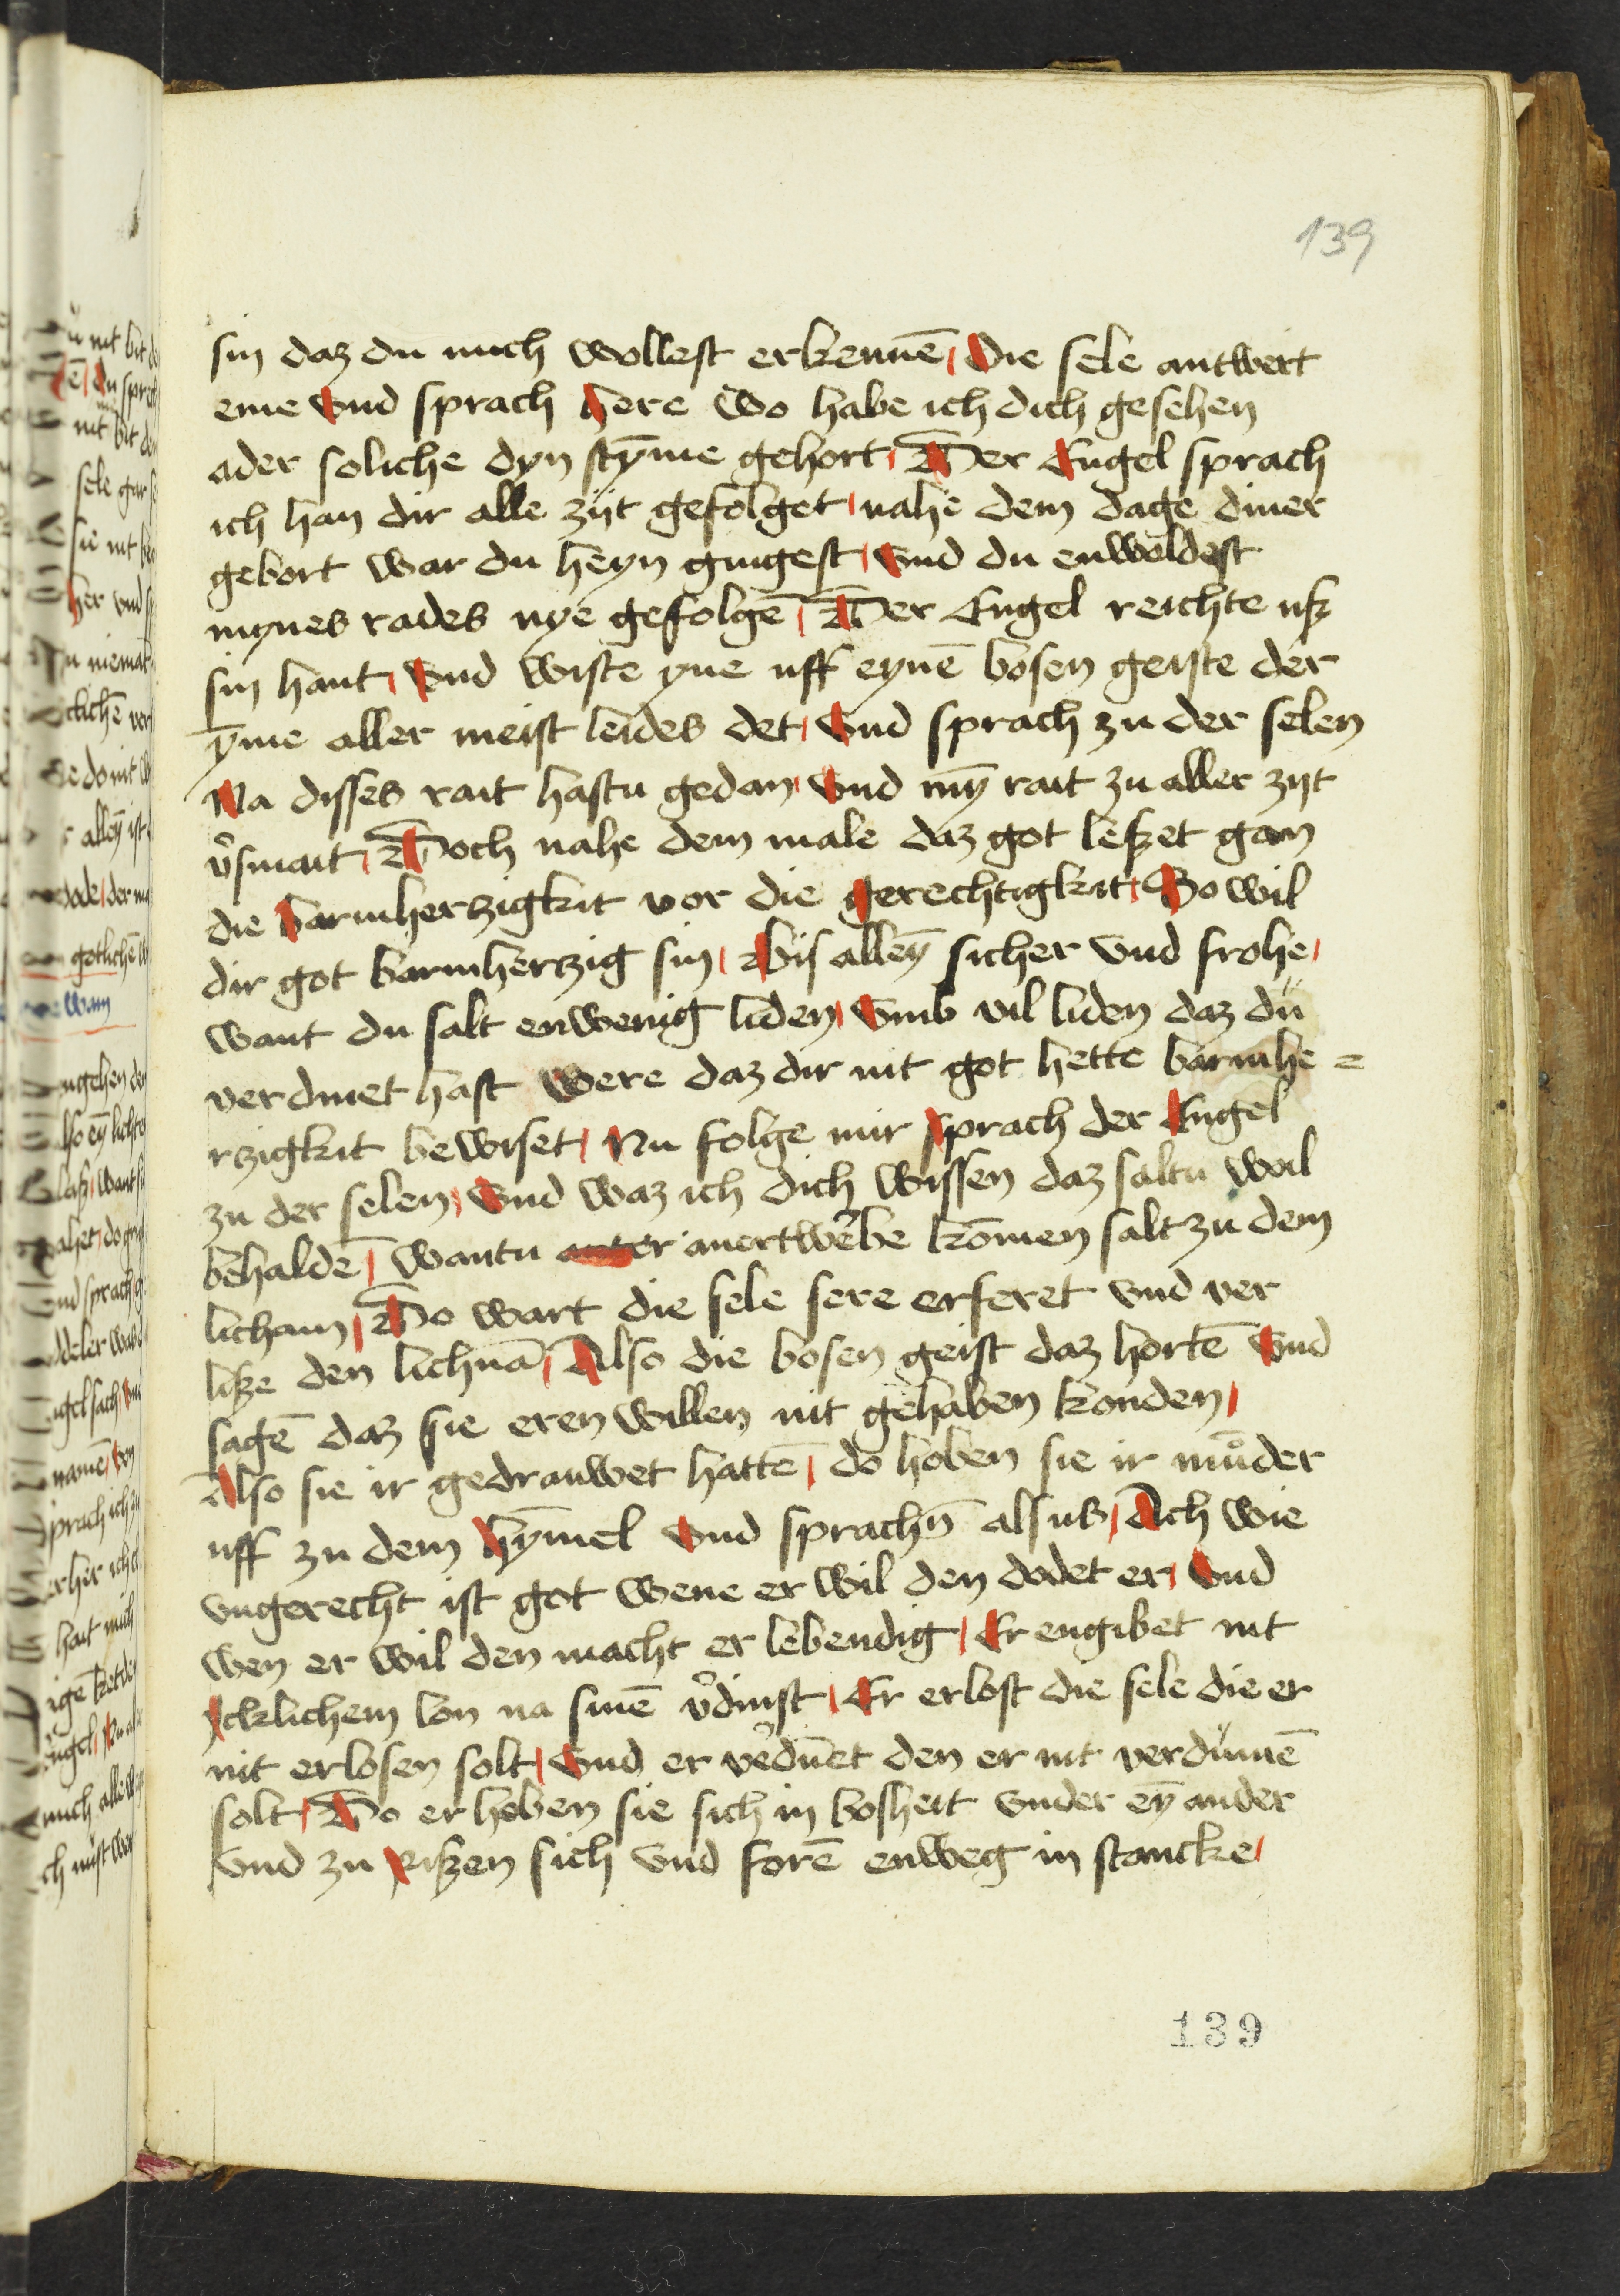 139
sin daz du mich wollest erkennē / Die sele antwert
eme vnd sprach here wo habe ich dich gesehen
ader soliche dyn stȳme gehort / Der Engel sprach
ich han dir alle zijt gefolget / nahe dem dage diner
gebort war du heyn gingest / vnd du enwoldest
mynes rades nye gefolgē / Der Engel reichte uß
sin hant / vnd wiste yne uff eynē bosen geiste der
ẏme aller meist leides det / vnd sprach zu der selen
Na disses rait hastu gedan / vnd mȳ rait zu aller zijt
v̉smait / Doch nahe dem male daz got leßet gan
die barmherzigkit vor die gerechtigkit / So wil
dir got barmherzig sin / Bis alleȳ sicher vnd frohe /
want du salt enwenig liden / vmb vil liden daz du
verdinet hast were daz dir nit got hette barmhe=
rzigkit bewiset / Nu folge mir sprach der Engel
zu der selen / vnd waz ich dich wissen daz saltu woil
behaldē / wantu anertwerbe kōmen salt zu dem
licham / Do wart die sele sere erferet vnd ver
liße den lichnā / Also die bosen geist daz hortē vnd
sagē daz sie eren willen nit gehaben konden /
Also sie ir gedrauwet hattē / do hoben sie ir mů̊der
uff zu dem hȳmel vnd sprachn̄ alsus / Ach wie
vngerecht ist got wene er wil den dodet er / vnd
wen er wil den macht er lebendig / Er engibet nit
ycklichem lon na sinē v̉dinst / Er erlost die sele die er
nit erlosen solt / vnd er v̉dūet den er nit verdümē
solt / Do er hoben sie sich in bosheit vnder eȳ ander
vnd zu rißen sich vnd forē enweg in stancke /
139